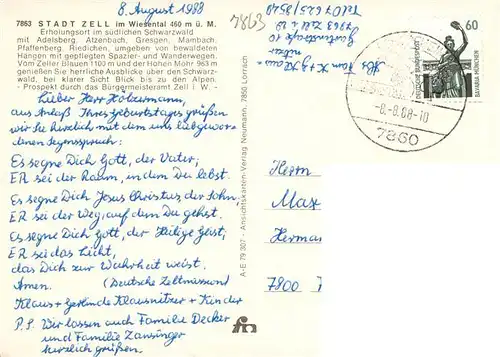 8. August 1988
7863 STADT ZELL im Wiesental 460 m ü. M.
Erholungsort im südlichen Schwarzwald
mit Adelsberg, Atzenbach, Gresgen, Mambach,
Pfaffenberg, Riedichen, umgeben von bewaldeten
Hängen mit gepflegten Spazier- und Wanderwegen.
Vom Zeller Blauen 1100 m und der Hohen Möhr 963 m
genießen Sie herrliche Ausblicke über den Schwarz-
wald, bei klarer Sicht Blick bis zu den Alpen.
- Prospekt durch das Bürgermeisteramt Zell i. W. -
Lieber Herr Holzermann,
aus Anlaß Ihres Geburtstages grüßen
wir Sie herzlich mit dem uns liebgewor-
denen Segensspruch:
Es segne Dich Gott, der Vater;
ER sei der Raum, in dem Du lebst.
Es segne Dich Jesus Christus, der Sohn,
ER sei der Weg, auf dem Du gehst.
Es segne Dich Gott, der Heilige Geist;
ER sei das Licht,
das Dich zur Wahrheit weist.
Amen. (Deutsche Zeltmission)
Klaus + Gerlinde Klausnitzer + Kinder
P.S. Wir lassen auch Familie Decker
und Familie Zansinger
herzlich grüßen.
A-E 79 307 - Ansichtskarten-Verlag Neumann, 7850 Lörrach
7863
Abs. Fam. K.
7863 Zell i. W.
Tel. 07625/8547
60
DEUTSCHE BUNDESPOST
BAVARIA MÜNCHEN
-8.-8.88-10
7860
Herrn
Max
Herman
7800